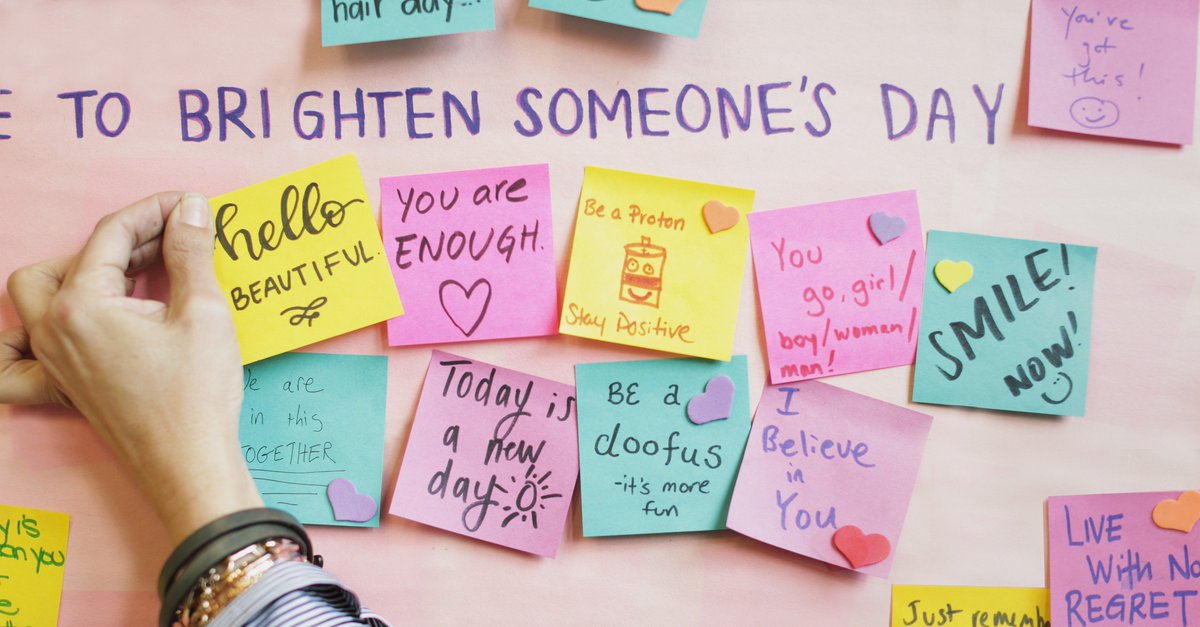 hair day...
You've
got
this!
TO BRIGHTEN SOMEONE'S DAY
hello
BEAUTIFUL.
You are
ENOUGH.
Be a Proton
Stay Positive
You
go, girl/
boy/woman/
man!
SMILE!
NOW!
are
in this
TOGETHER
Today is
a new
day
BE a
doofus
-it's more
fun
I
Believe
in
You
is
you
LIVE
With No
REGRET
Just